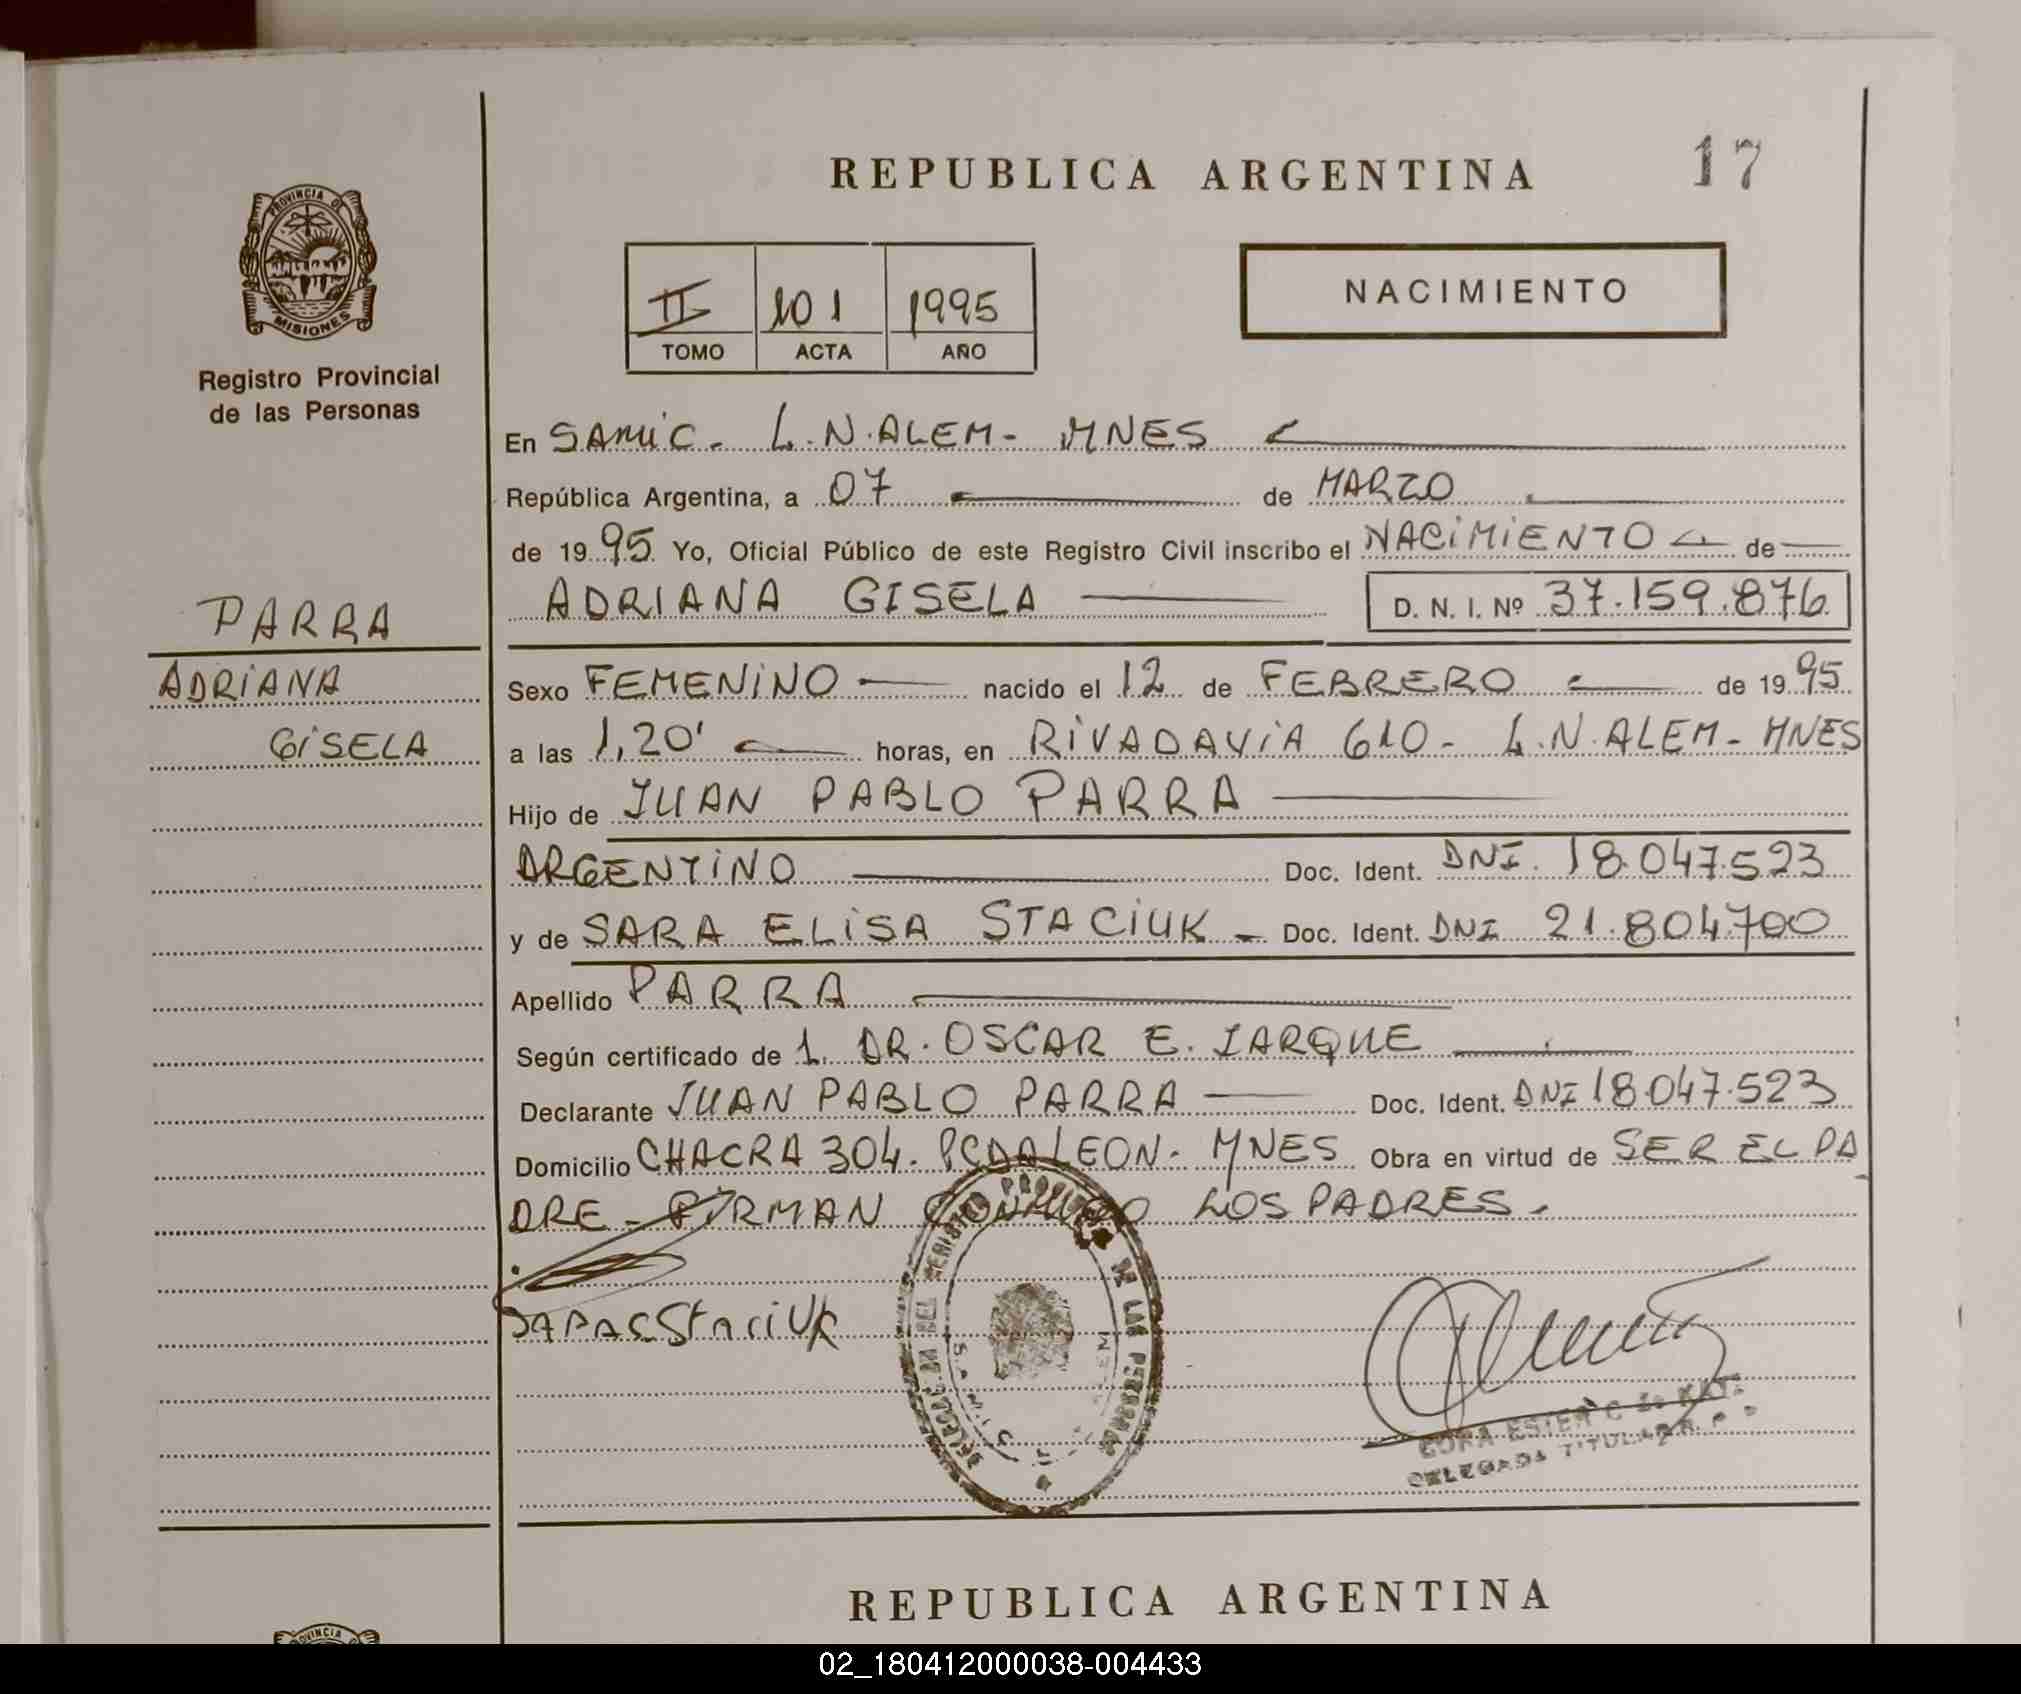 REPUBLICA ARGENTINA
17
PROVINCIA DE
MISIONES
Registro Provincial
de las Personas
II 101 1995
TOMO ACTA AÑO
NACIMIENTO
En SAMIC. L.N.ALEM- MNES
República Argentina, a 07 de MARZO
de 1995 Yo, Oficial Público de este Registro Civil inscribo el NACIMIENTO de
ADRIANA GISELA D. N. I. Nº 37.159.876
PARRA
ADRIANA
GISELA
Sexo FEMENINO nacido el 12 de FEBRERO de 1995
a las 1,20' horas, en RIVADAVIA 610- L.N.ALEM-MNES
Hijo de JUAN PABLO PARRA
ARGENTINO Doc. Ident. DNI. 18.047.523
y de SARA ELISA STACIUK - Doc. Ident. DNI 21.804.700
Apellido PARRA
Según certificado de 1. DR. OSCAR E. IARQUE
Declarante JUAN PABLO PARRA Doc. Ident. DNI 18.047.523
Domicilio CHACRA 304. PCDALEON- MNES Obra en virtud de SER EL PA
DRE - FIRMAN CONMIGO LOS PADRES.
Staciuk
DE LAS PERSONAS
ESTER C. de
DELEGADA TITULAR R. P. P.
REPUBLICA ARGENTINA
PROVINCIA
02_180412000038-004433